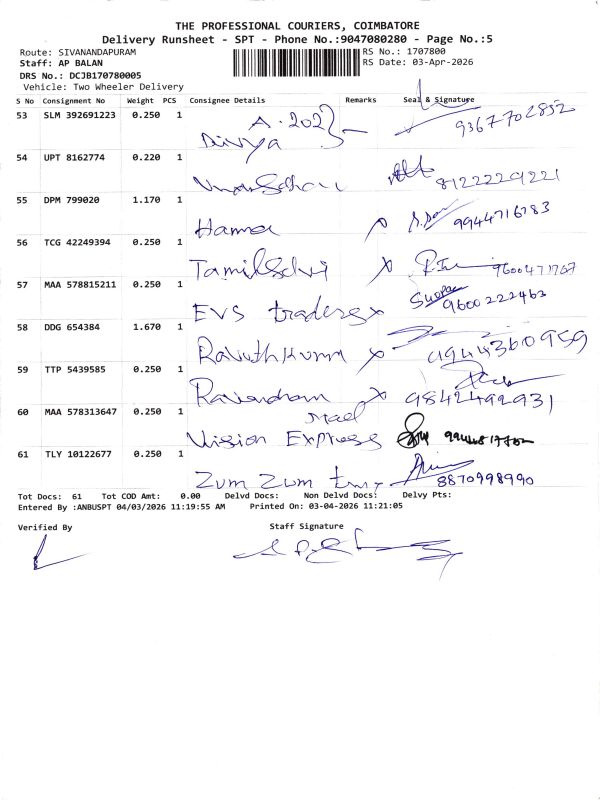 THE PROFESSIONAL COURIERS, COIMBATORE
Delivery Runsheet - SPT - Phone No.:9047080280 - Page No.:5
Route: SIVANANDAPURAM RS No.: 1707800
Staff: AP BALAN RS Date: 03-Apr-2026
DRS No.: DCJB170780005
Vehicle: Two Wheeler Delivery
S No Consignment No Weight PCS Consignee Details Remarks Seal & Signature
53 SLM 392691223 0.250 1 A. 202 9367702852
Divya
54 UPT 8162774 0.220 1 8122229221
55 DPM 799020 1.170 1
Hamna 9944716783
56 TCG 42249394 0.250 1
TamilSelvi 9600471767
57 MAA 578815211 0.250 1
EVS traders 9600222463
58 DDG 654384 1.670 1
9944360959
59 TTP 5439585 0.250 1
9842492931
60 MAA 578313647 0.250 1
Vision Express
61 TLY 10122677 0.250 1
Zum Zum 8870998990
Tot Docs: 61 Tot COD Amt: 0.00 Delvd Docs: Non Delvd Docs: Delvy Pts:
Entered By :ANBUSPT 04/03/2026 11:19:55 AM Printed On: 03-04-2026 11:21:05
Verified By Staff Signature